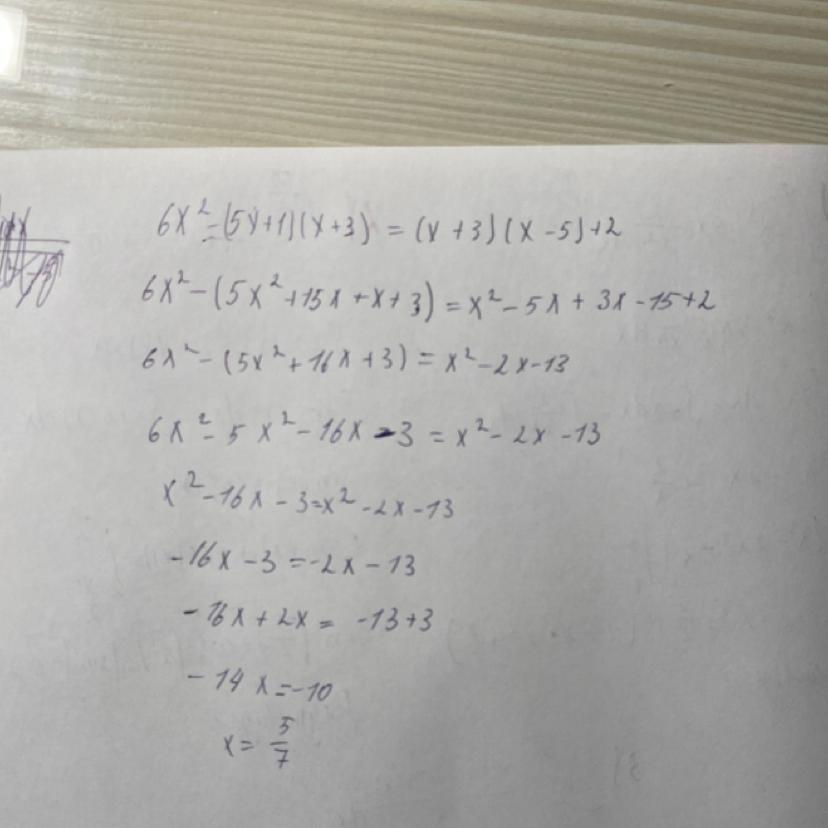 6x² - (5x+1)(x+3) = (x+3)(x-5)+2
6x² - (5x²+15x+x+3) = x² - 5x + 3x - 15+2
6x² - (5x² + 16x + 3) = x² - 2x - 13
6x² - 5x² - 16x - 3 = x² - 2x - 13
x² - 16x - 3 = x² - 2x - 13
-16x - 3 = -2x - 13
-16x + 2x = -13+3
-14x = -10
x = 5/7